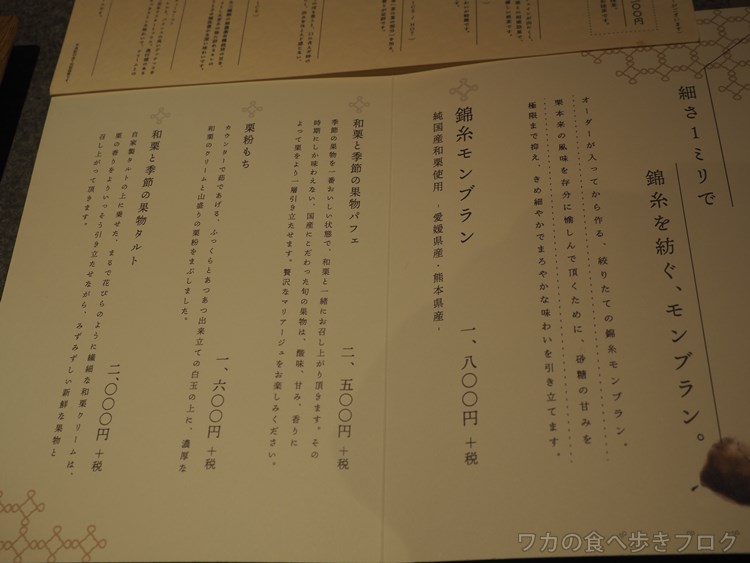 細さ1ミリで
錦糸を紡ぐ、モンブラン。
オーダーが入ってから作る、絞りたての錦糸モンブラン。
栗本来の風味を存分に愉しんで頂くために、砂糖の甘みを
極限まで抑え、きめ細やかでまろやかな味わいを引き立てます。
錦糸モンブラン
一、八〇〇円 +税
純国産和栗使用 -愛媛県産・熊本県産-
和栗と季節の果物パフェ
二、五〇〇円 +税
季節の果物を一番おいしい状態で、和栗と一緒にお召し上がり頂きます。その
時期にしか味わえない、国産にこだわった旬の果物は、酸味、甘み、香りに
よって栗をより一層引き立たせます。贅沢なマリアージュをお楽しみください。
栗粉もち
一、六〇〇円 +税
カウンターで茹であげる、ふっくらとあつあつ出来立ての白玉の上に、濃厚な
和栗のクリームと山盛りの栗粉をまぶしました。
和栗と季節の果物タルト
二、〇〇〇円 +税
自家製タルトの上に乗せた、まるで花びらのように繊細な和栗クリームは、
栗の香りをよりいっそう引き立たせながら、みずみずしい新鮮な果物と
召し上がって頂きます。
ワカの食べ歩きブログ